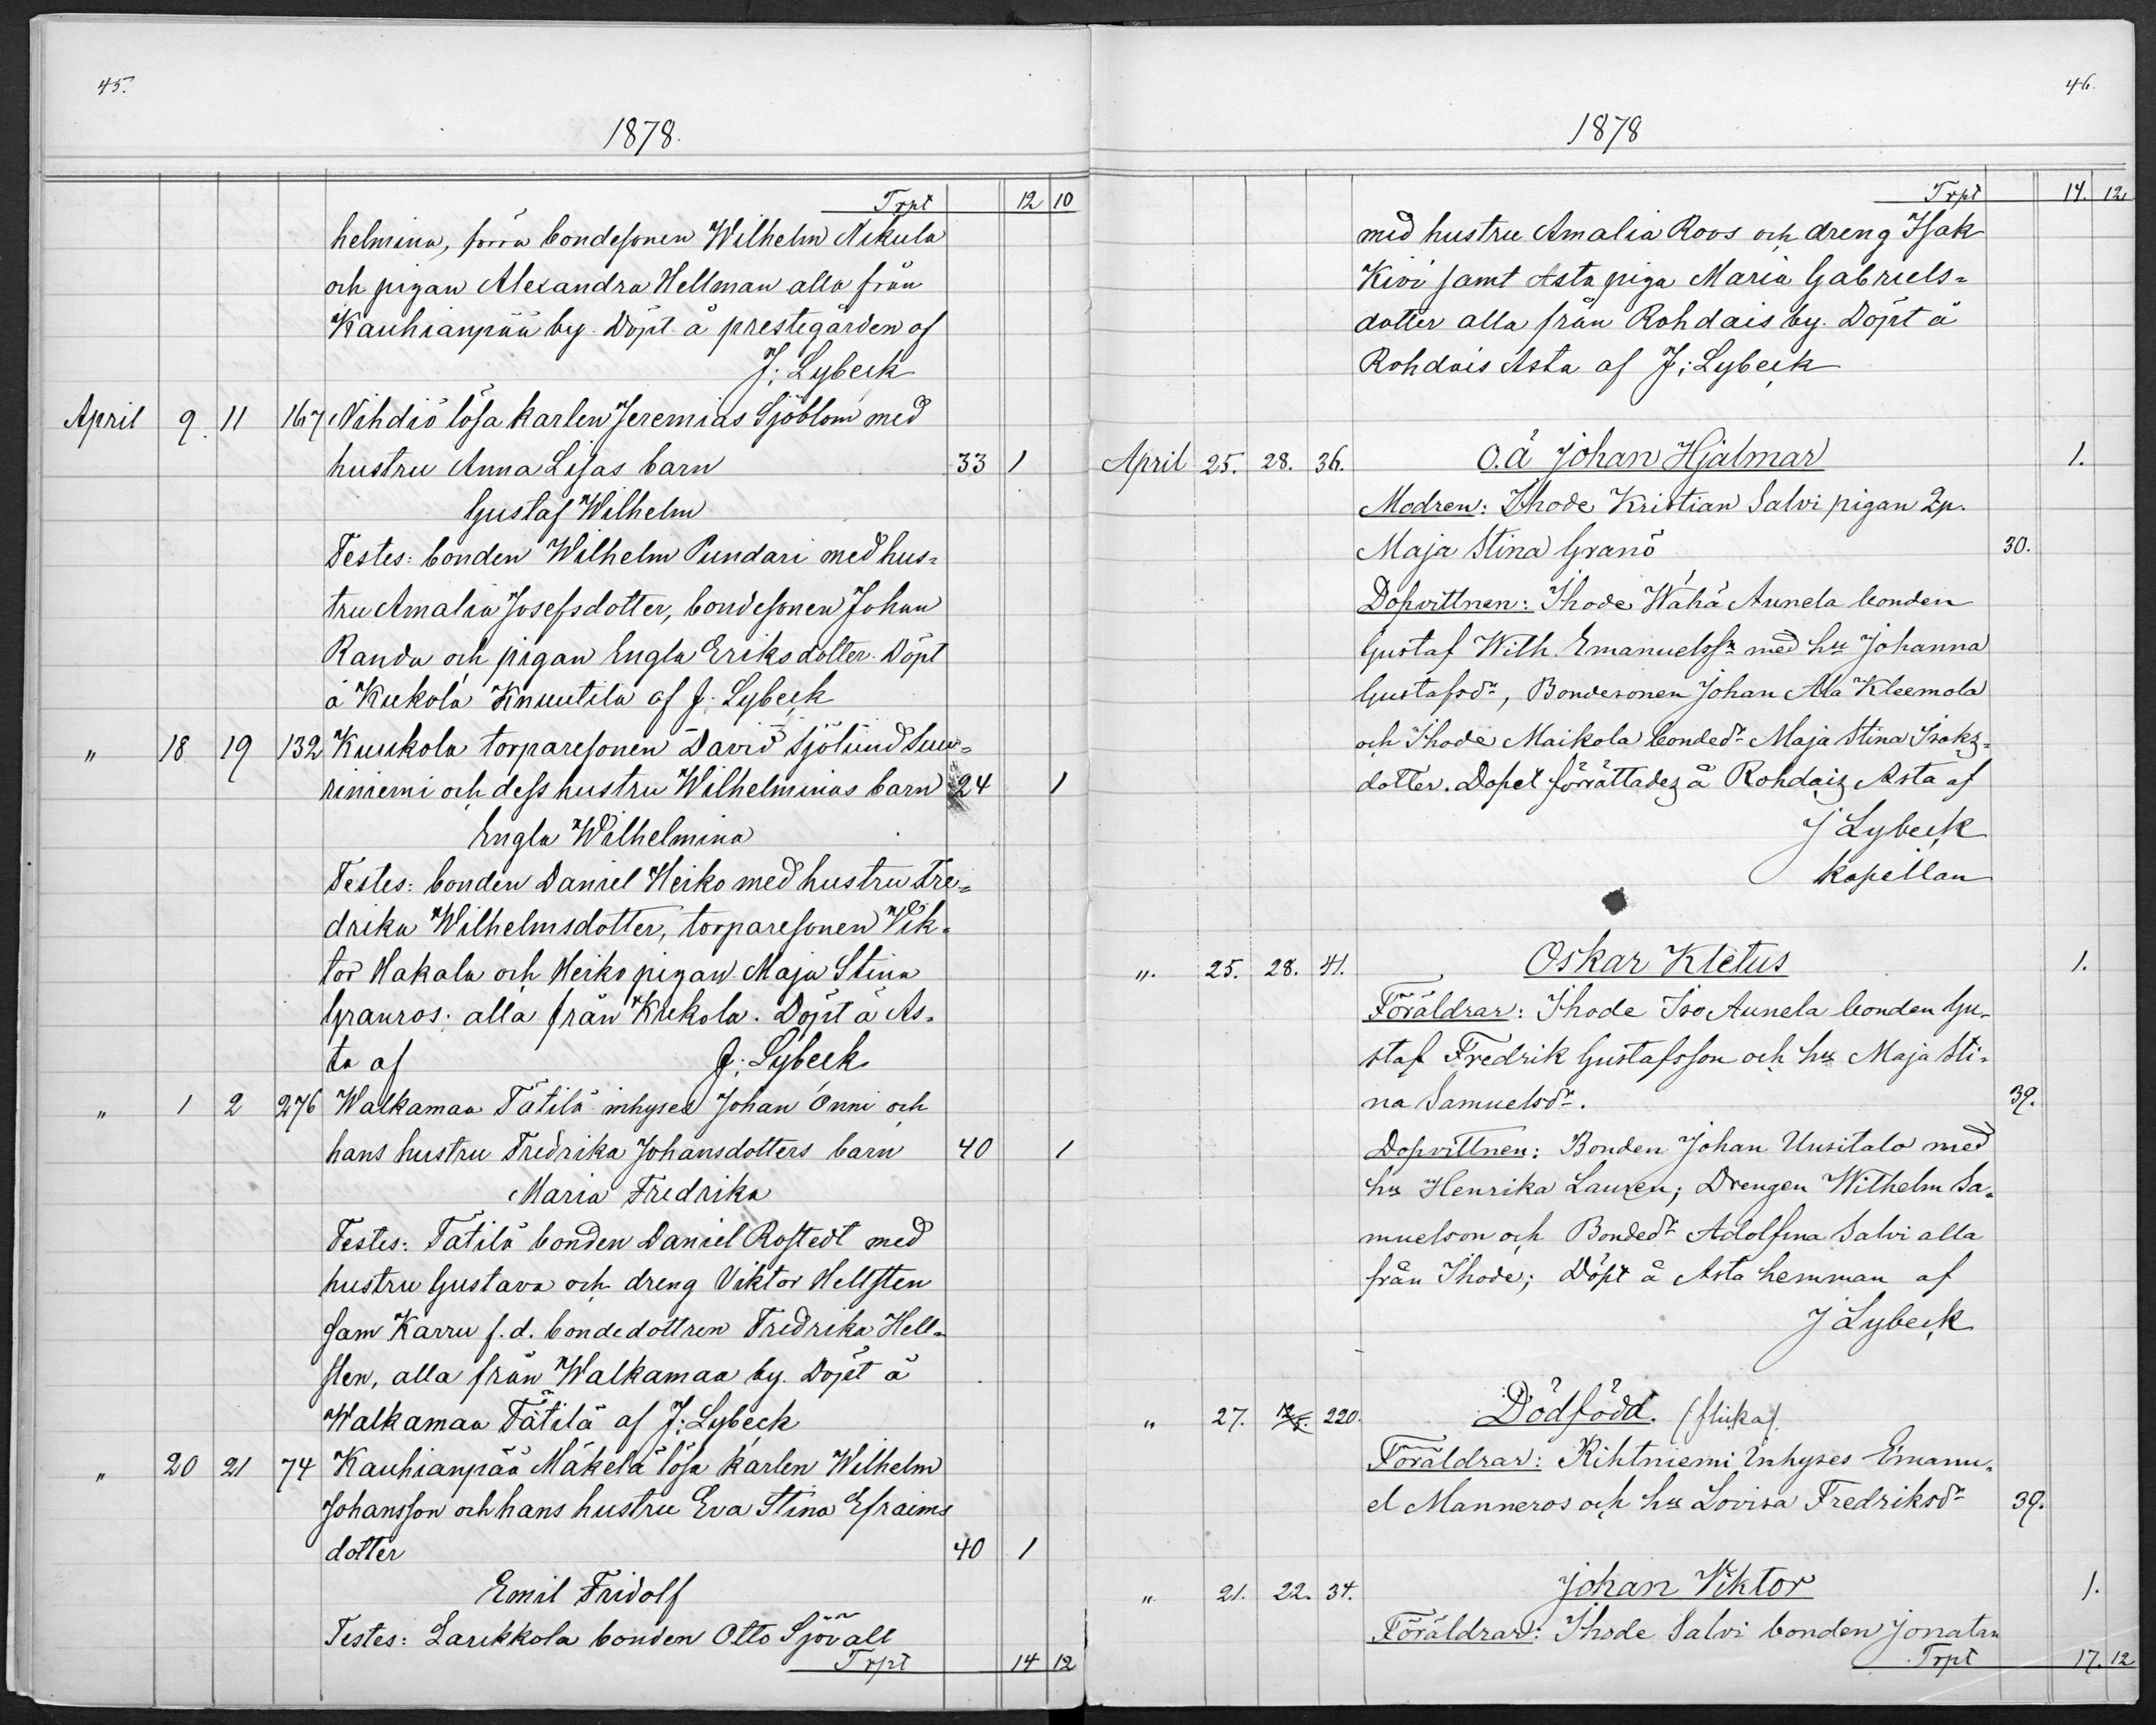 45.
1878.
Trpt 12 10
helmina, förra bondesonen Wilhelm Nikula
och pigan Alexandra Hellman alla från
Kauhianpää by. Döpt å prestegården af
J: Lybeck
April 9. 11 167 Nihdiö lösa karlen Jeremias Sjöblom med
hustru Anna Lisas barn 33 1
Gustaf Wilhelm
Testes: bonden Wilhelm Pundari med hus=
tru Amalia Josefsdotter, bondesonen Johan
Randa och pigan Engla Eriksdotter. Döpt
å Kukola Knuutila af J. Lybeck
" 18 19 132 Kuukola torparesonen David Sjölund Suu=
riniemi och dess hustru Wilhelminas barn 24 1
Engla Wilhelmina
Testes: bonden Daniel Heiko med hustru Fre=
drika Wilhelmsdotter, torparesonen Vik=
tor Hakala och Heiko pigan Maja Stina
Granros. alla från Kukola. Döpt å As=
ta af J: Lybeck
" 1 2 276 Walkamaa Tätilä inhyses Johan Onni och
hans hustru Fredrika Johansdotters barn 40 1
Maria Fredrika
Testes: Tätilä bonden Daniel Rostedt med
hustru Gustava och dreng Viktor Hellsten
sam Karru f.d. bondedottren Fredrika Hell=
sten, alla från Walkamaa by. Döpt å
Walkamaa Tätilä af J: Lybeck
" 20 21 74 Kauhianpää Mäkelä lösa karlen Wilhelm
Johansson och hans hustru Eva Stina Efraims
dotter 40 1
Emil Fridolf
Testes: Larikkola bonden Otto Sjövall
Trpt 14 12
46.
1878
Trpt 14. 12.
med hustru Amalia Roos och dreng Isak
Kivi samt Asta piga Maria Gabriels=
dotter alla från Rohdais by. Döpt å
Rohdais Asta af J: Lybeck
April 25. 28. 36. O.ä Johan Hjalmar 1.
Modren: Ihode Kristian Salvi pigan Qp.
Maja Stina Granö 30.
Dopvittnen: Ihode Wähä Aunela bonden
Gustaf Wilh. Emanuelssn med hu Johanna
Gustafsdr, Bondesonen Johan Ala Kleemola
och Ihode Maikola bondedr Maja Stina Isaks=
dotter. Dopet förrättades å Rohdais Asta af
J Lybeck
kapellan
". 25. 28. 41. Oskar Kletus 1.
Föräldrar: Ihode Iso Aunela bonden Gu=
staf Fredrik Gustafsson och hu Maja Sti=
na Samuelsdr. 39.
Dopvittnen: Bonden Johan Uusitalo med
hu Henrika Lauren; Drengen Wilhelm Sa=
muelson och Bondedr Adolfina Salvi alla
från Ihode; Döpt å Asta hemman af
J Lybeck
" 27. 220. Dödfödd. (flicka).
Föräldrar: Rihtniemi Inhyses Emanu=
el Manneros och hu Lovisa Fredriksdr 39.
" 21. 22. 34. Johan Viktor 1.
Föräldrar: Ihode Salvi bonden Jonatan
Trpt 17. 12